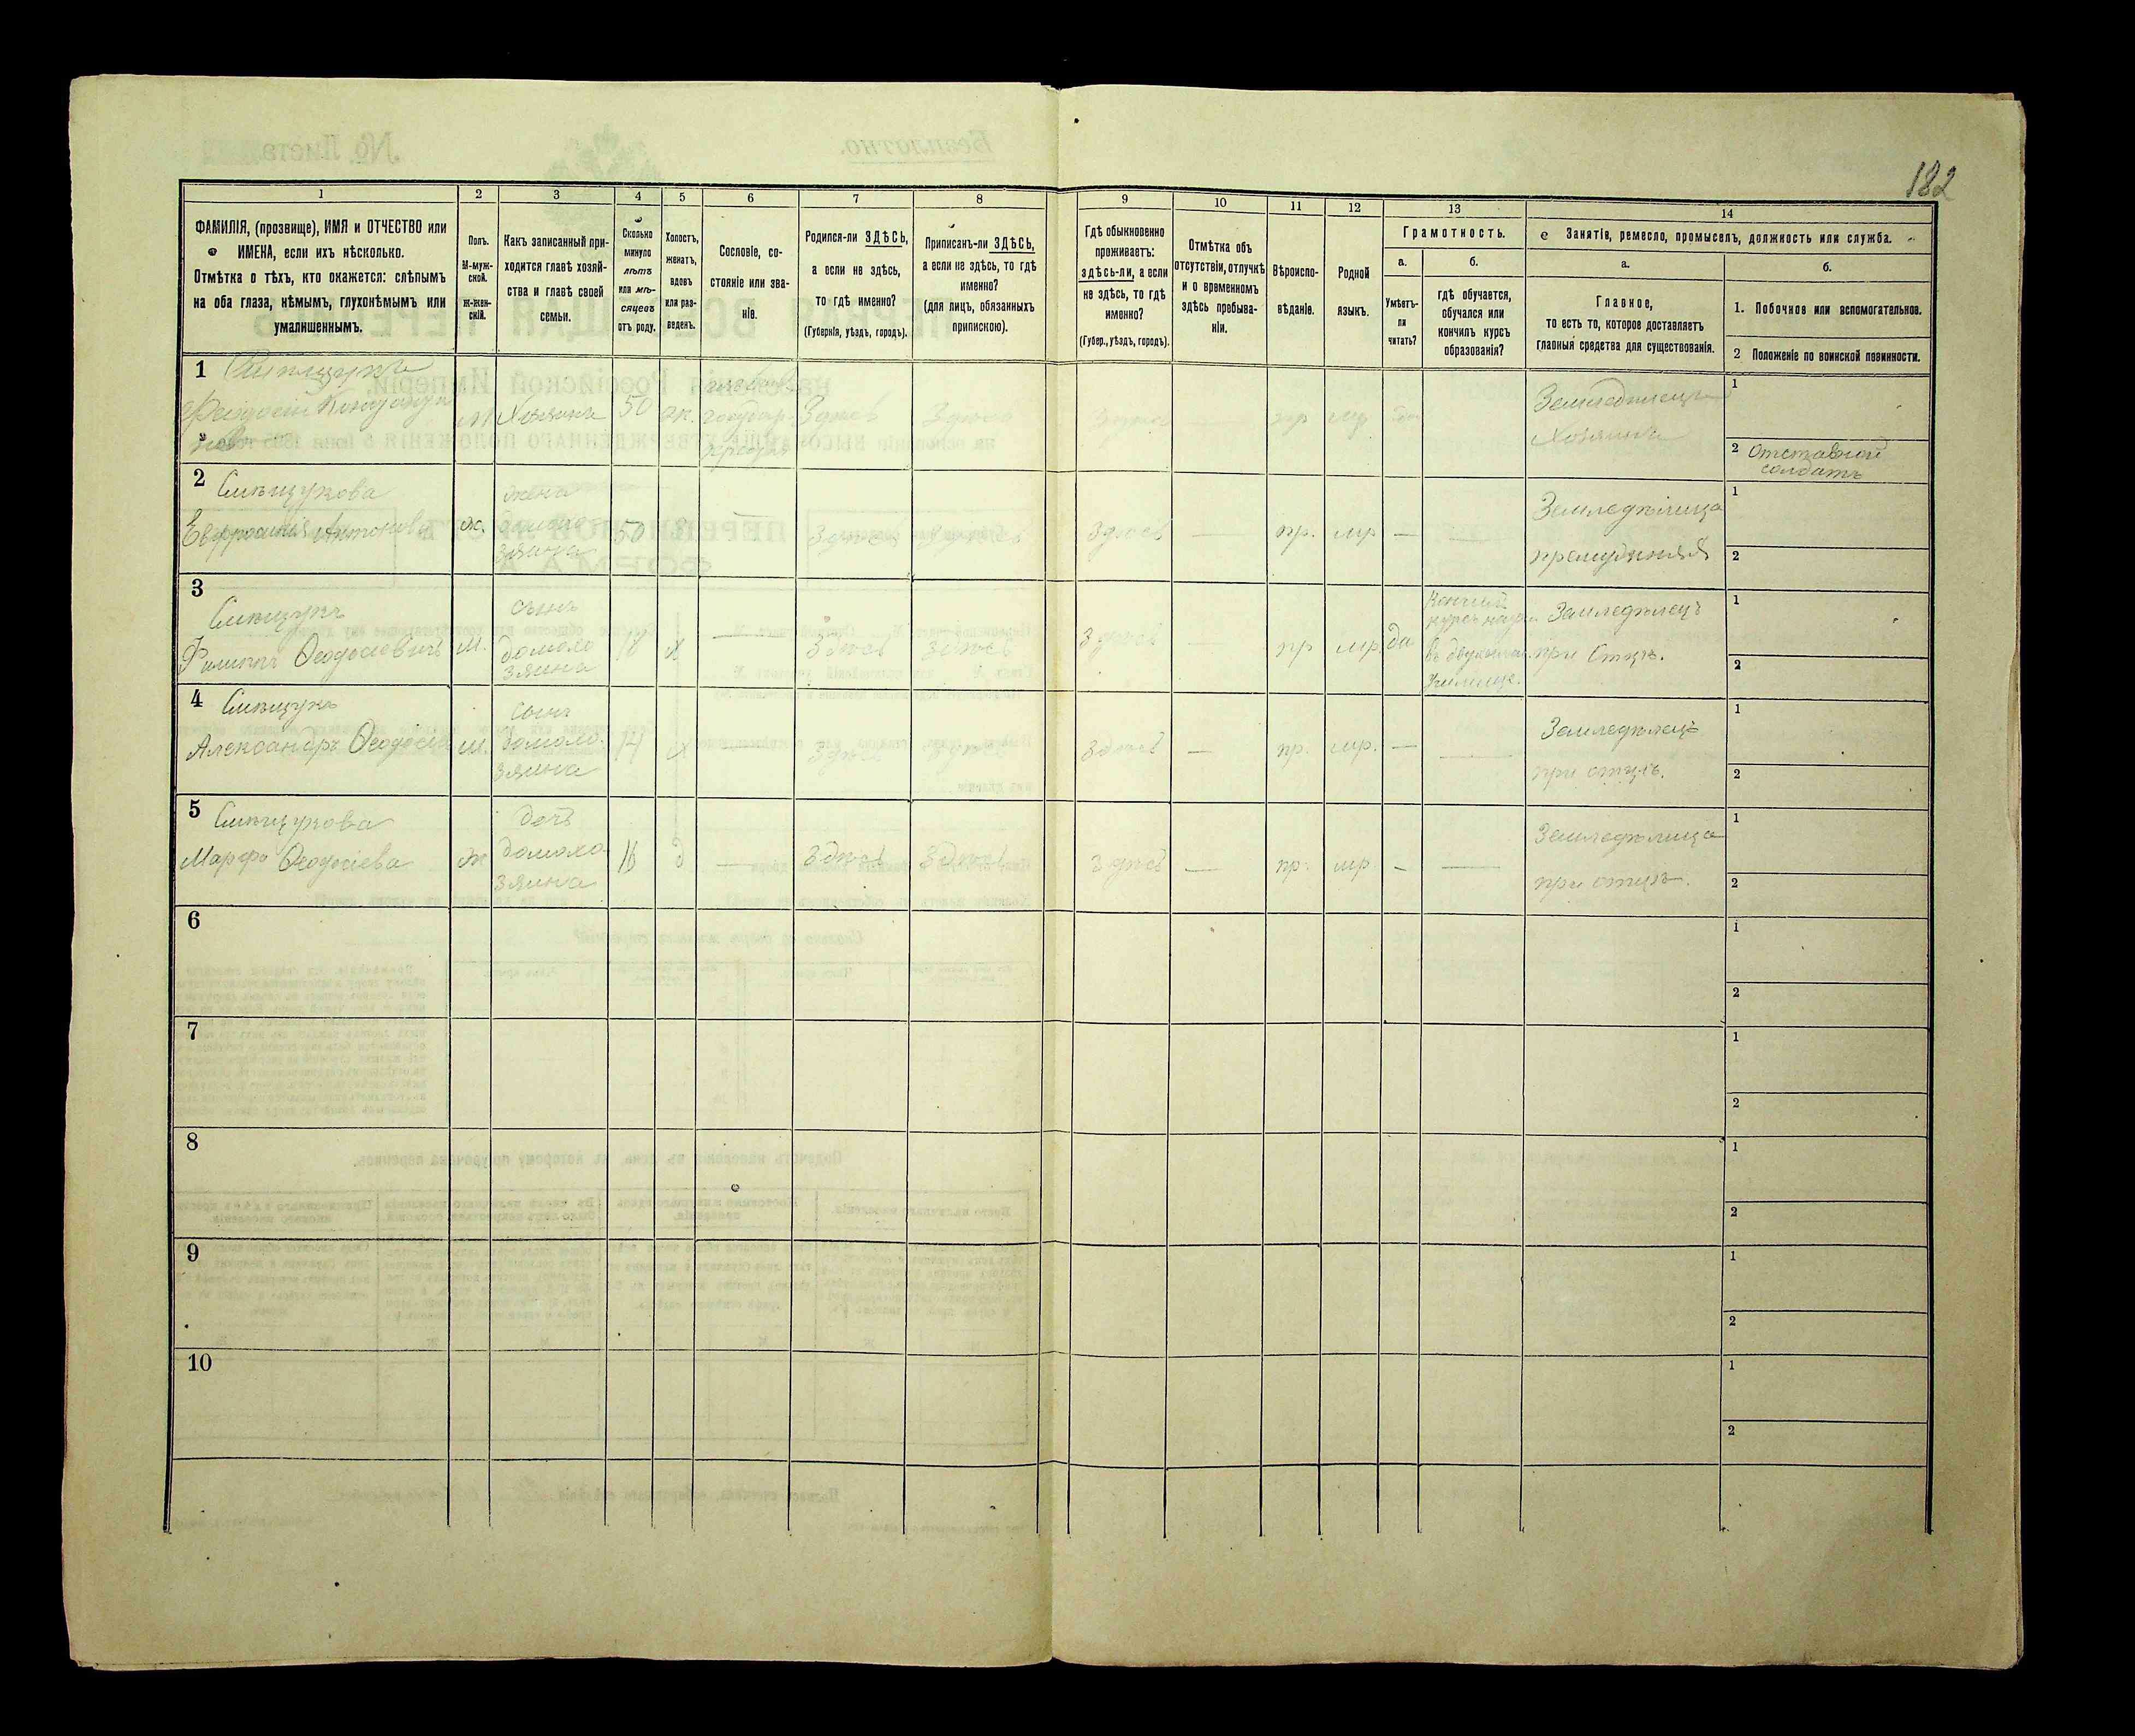 182
1
2
3
4
5
6
7
8
9
10
11
12
13
14
ФАМИЛІЯ, (прозвище), ИМЯ и ОТЧЕСТВО или
ИМЕНА, если ихъ нѣсколько.
Отмѣтка о тѣхъ, кто окажется: слѣпымъ
на оба глаза, нѣмымъ, глухонѣмымъ или
умалишеннымъ.
Полъ.
М-муж-
ской.
Ж-жен-
скій.
Какъ записанный при-
ходится главѣ хозяй-
ства и главѣ своей
семьи.
Сколько
минуло
лѣтъ
или мѣ-
сяцевъ
отъ роду.
Холостъ,
женатъ,
вдовъ
или раз-
веденъ.
Сословіе, со-
стояніе или зва-
ніе.
Родился-ли ЗДѢСЬ,
а если не здѣсь,
то гдѣ именно?
(Губернія, уѣздъ, городъ).
Приписанъ-ли ЗДѢСЬ,
а если не здѣсь, то гдѣ
именно?
(для лицъ, обязанныхъ
припискою).
Гдѣ обыкновенно
проживаетъ:
здѣсь-ли, а если
не здѣсь, то гдѣ
именно?
(Губер., уѣздъ, городъ).
Отмѣтка объ
отсутствіи, отлучкѣ
и о временномъ
здѣсь пребыва-
ніи.
Вѣроиспо-
вѣданіе.
Родной
языкъ.
Грамотность.
а.
Умѣетъ-
ли
читать?
б.
гдѣ обучается,
обучался или
кончилъ курсъ
образованія?
Занятіе, ремесло, промыселъ, должность или служба.
а.
Главное,
то есть то, которое доставляетъ
главныя средства для существованія.
б.
1. Побочное или вспомогательное.
2 Положеніе по воинской повинности.
1
м Хозяинъ 50 ж. Здѣсь Здѣсь Здѣсь — мр
Земледѣлецъ
Хозяинъ
1
2 Отставной
солдатъ
2 Смѣщукова
Евфросинія Антонова ж.
жена
домохо
зяина
50 — Здѣсь Здѣсь Здѣсь — пр. мр — —
Земледѣлица
1
2
3
Смѣщукъ
Филиппъ Ѳеодосіевичъ м.
сынъ
домохо
зяина
18 х — Здѣсь Здѣсь Здѣсь — пр мр. да
Кончилъ
курсъ
училище.
Земледѣлецъ
при Отцѣ.
1
2
4 Смѣщукъ
Александръ м.
сынъ
домохо-
зяина
14 х Здѣсь Здѣсь Здѣсь — пр. мр. — —
Земледѣлецъ
при отцѣ.
1
2
5 Смѣщукова
Марфа Ѳеодосіева ж
дочь
домохо-
зяина
16 д — Здѣсь Здѣсь Здѣсь — пр. мр. — —
Земледѣлица
при отцѣ.
1
2
6
1
2
7
1
2
8
1
2
9
1
2
10
1
2